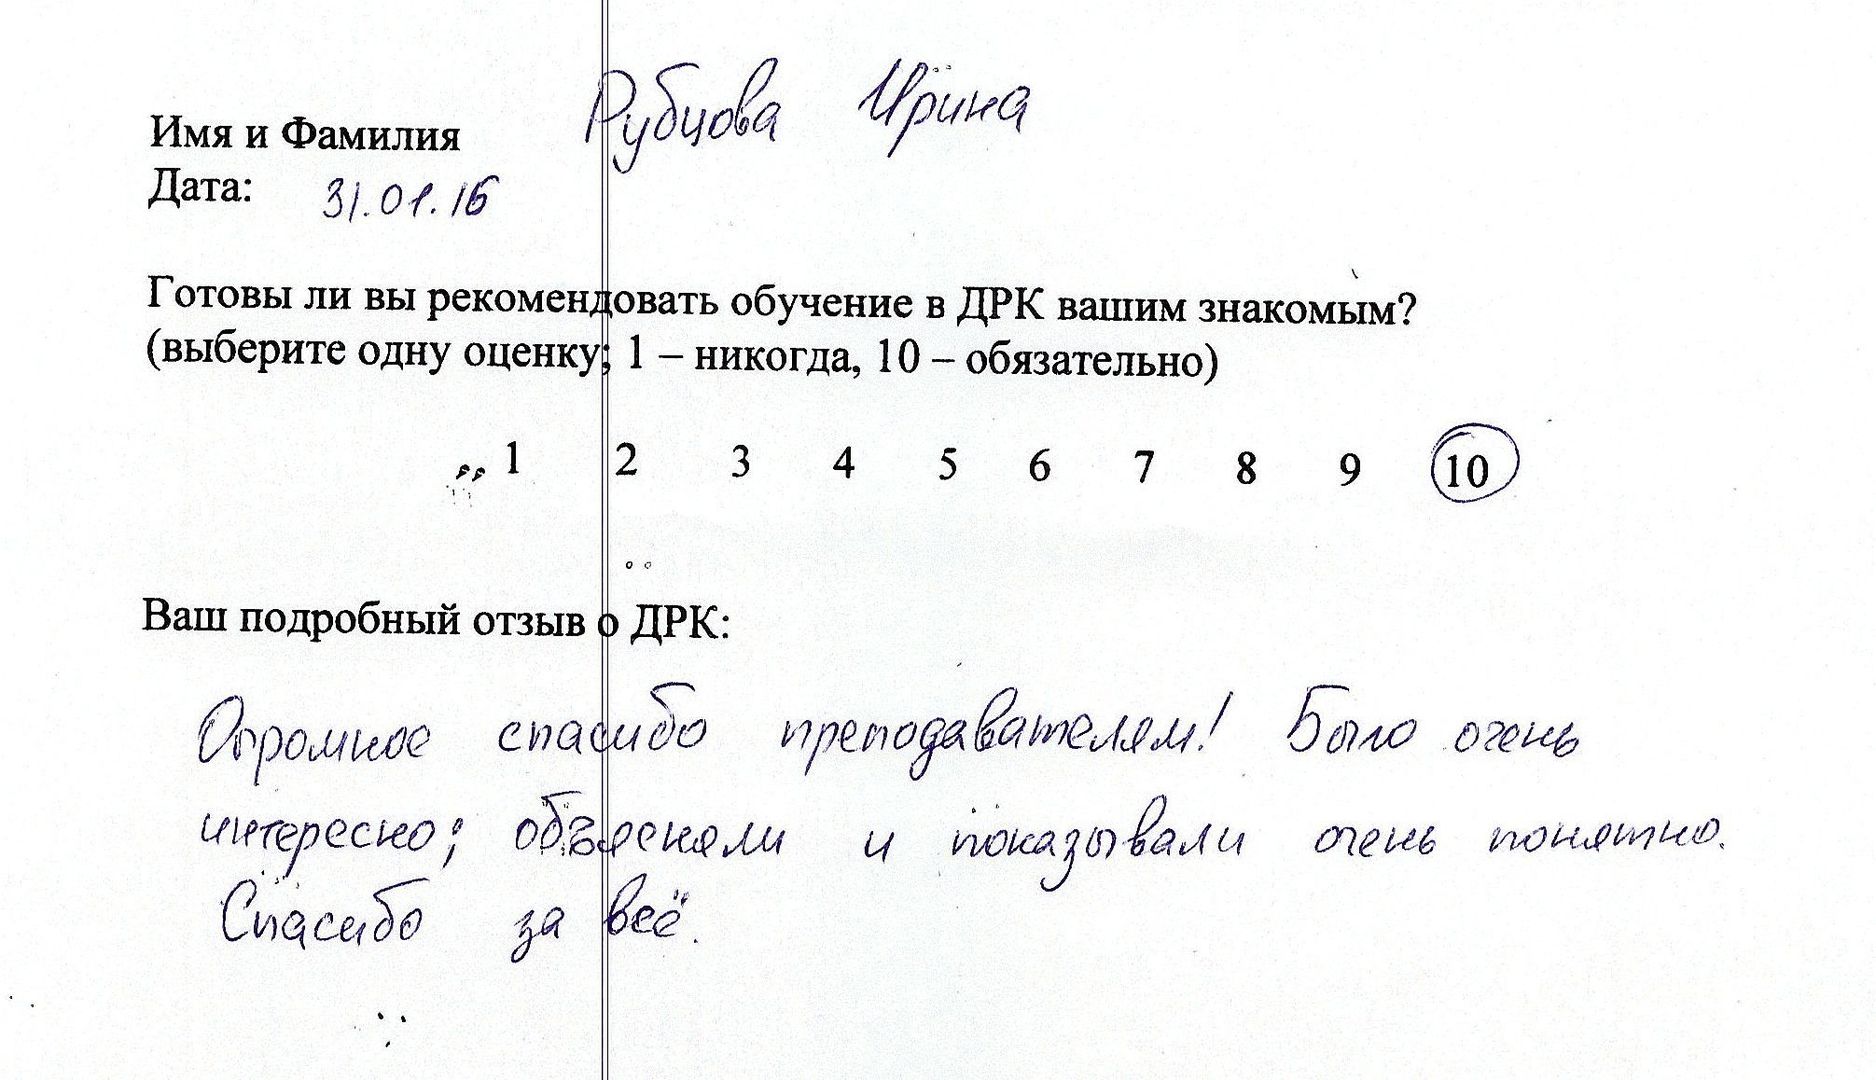 Имя и Фамилия Рубцова Ирина
Дата: 31.01.16
Готовы ли вы рекомендовать обучение в ДРК вашим знакомым?
(выберите одну оценку; 1 – никогда, 10 – обязательно)
1 2 3 4 5 6 7 8 9 10
Ваш подробный отзыв о ДРК:
Огромное спасибо преподавателям! Было очень
интересно; объясняли и показывали очень понятно.
Спасибо за всё.